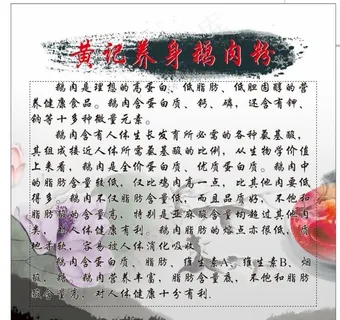 黄记养身鹅肉粉
鹅肉是理想的高蛋白、低脂肪、低胆固醇的营
养健康食品。鹅肉含蛋白质、钙、磷，还含有钾、
钠等十多种微量元素。
鹅肉含有人体生长发育所必需的各种氨基酸，
其组成接近人体所需氨基酸的比例，从生物学价值
上来看，鹅肉是全价蛋白质、优质蛋白质。鹅肉中
的脂肪含量较低，仅比鸡肉高一点，比其他肉要低
得多。鹅肉不仅脂肪含量低，而且品质好，不饱和
脂肪酸的含量高，特别是亚麻酸含量均超过其他肉
类，对人体健康有利。鹅肉脂肪的熔点亦很低，质
地柔软，容易被人体消化吸收。
鹅肉含蛋白质、脂肪、维生素A、维生素B、烟
酸、糖。鹅肉营养丰富，脂肪含量底，不饱和脂
肪酸含量高，对人体健康十分有利.